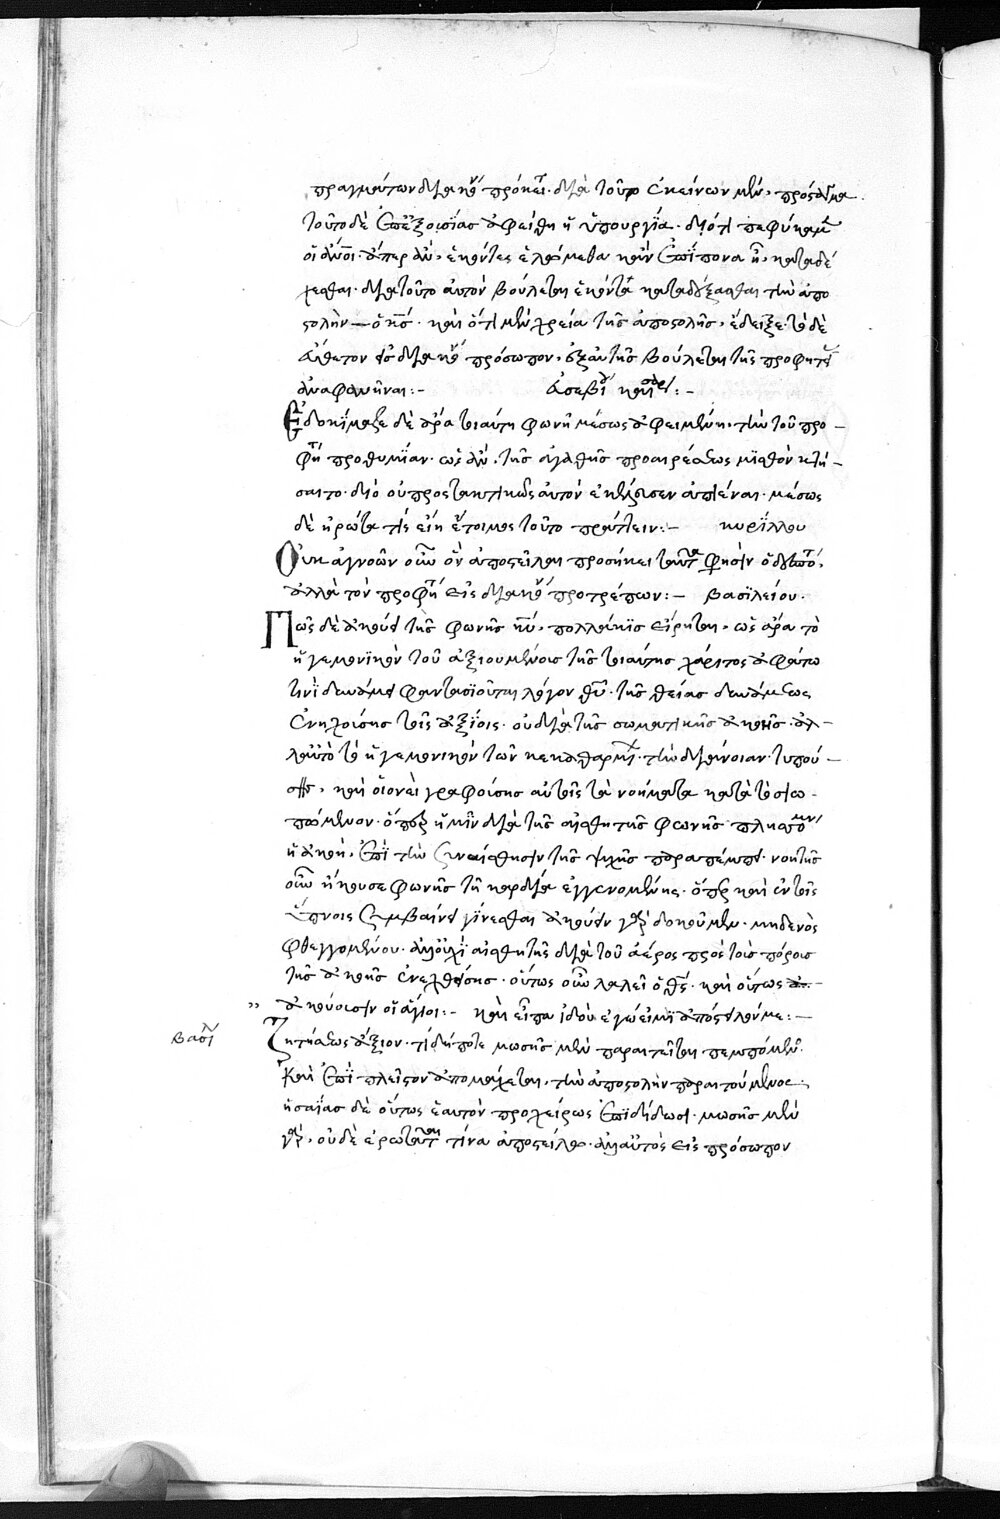 πραγμάτων διακον πρόκειται· διὰ τοῦτο ἐκείνων μὲν, πρόσταγμα.
τοῦτο δὲ ἐπ' ἐξουσίας ἀφείθη ἡ ὑπουργΐα· διότι πεφύκαμεν
οἱ ἄνθρωποι· ἅπερ ἂν, ἑκόντες ἑλώμεθα κἂν ἐπΐπονα ᾖ, καταδέ
χεσθαι· διὰ τοῦτο αὐτὸν βούλεται ἑκόντα καταδέξασθαι τὴν ἀπο
στολήν — ὁ κς· καὶ ὅτι μὲν χρεία τῆς ἀποστολῆς, ἔδειξε· τὸ δὲ
εὔθετον εἰς διακονίαν πρόσωπον, ἐξ αὐτῆς βούλεται τῆς προφητείας
ἀναφανῆναι:– εὐσεβίου καὶ
Εδοκΐμαξε δὲ ἄρα τοιαύτη φωνῆ μέσως ἀφειμένη, τὴν τοῦ προ–
φήτου προθυμΐαν· ὡς ἂν, τῆς ἀγαθῆς προαιρέσεως μϊσθὸν κτή–
σαιτο· διὸ οὐ προστακτικῶς αὐτὸν ἐκέλευσεν ἀπιέναι· μέσως
δὲ ἠρώτα τίς εἴη ἕτοιμος τοῦτο πράττειν:– κυρΐλλου
Ουκ ἀγνοῶν οὖν ὃν ἀποστεῖλαι προσήκει ταῦτα φησὶν ὁ δεσπότης,
ἀλλὰ τὸν προφήτην εἰς διακονίαν προτρέπων:– βασϊλείου.
Πῶς δὲ ἀκούει τῆς φωνῆς κυ, πολλάκϊς εἴρηται, ὡς ἄρα τὸ
ἡγεμονϊκὸν τοῦ ἀξιουμένου τῆς τοιαύτης χάριτος ἀφράστω
τινΐ δυνάμει φαντασϊοῦται λόγον θυ· τῆς θείας δυνάμεως
ἐνηχούσης τοῖς ἀξΐοις· οὐ διὰ τῆς σωματικῆς ἀκοῆς· ἀλ–
λ' αὐτὸ τὸ ἡγεμονικὸν τῶν κεκαθαρμένων· τὴν διάνοιαν· τυπού–
σης, καὶ οἱονεὶ γραφούσης αὐτοῖς τὰ νοήματα κατὰ τὸ σιω–
πώμενον· ὅπερ ἡμῖν διὰ τῆς αἰσθητῆς φωνῆς πλησσομένη
ἡ ἀκοὴ, ἐπΐ τὴν συναίσθησιν τῆς ψυχῆς παραπέμπει· νοητῆς
οὖν ἤκουσε φωνῆς τῇ καρδία ἐγγενομένης· ὅπερ καὶ ἐν τοῖς
ὕπνοις συμβαίνει γίνεσθαι ἀκούειν γὰρ δοκοῦμεν· μηδενὸς
φθεγγομένου· ἀλλ' οὐχὶ αἰσθητῆς διὰ τοῦ ἀέρος πρὸς τοὺς πόρους
τῆς ἀκοῆς ἐνεχθείσης· οὕτως οὖν λαλεῖ ὁ θς· καὶ οὕτως
" ἀκούουσιν οἱ ἅγιοι:– καὶ εἶπα ἰδοὺ ἐγώ εἰμϊ ἀπόστειλόν με:–
βασΐλ Ζητήσεως ἄξιον· τί δήποτε μωσῆς μὲν παραιτεῖται πεμπόμενος·
Καὶ ἐπΐ πλεῖστον ἀπομάχεται, τὴν ἀποστολὴν παραιτούμενος·
ἡσαΐας δὲ οὕτως ἑαυτὸν προχείρως ἐπϊδίδωσι· μωσῆς μὲν
γὰρ, οὐδὲ ἐρωτᾶται τίνα ἀποστείλω· ἀλλ' αὐτὸς εἰς πρόσωπον